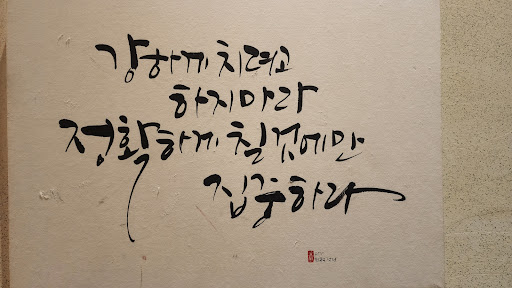 강하게 치려고
하지마라
정확하게 칠것에만
집중하라